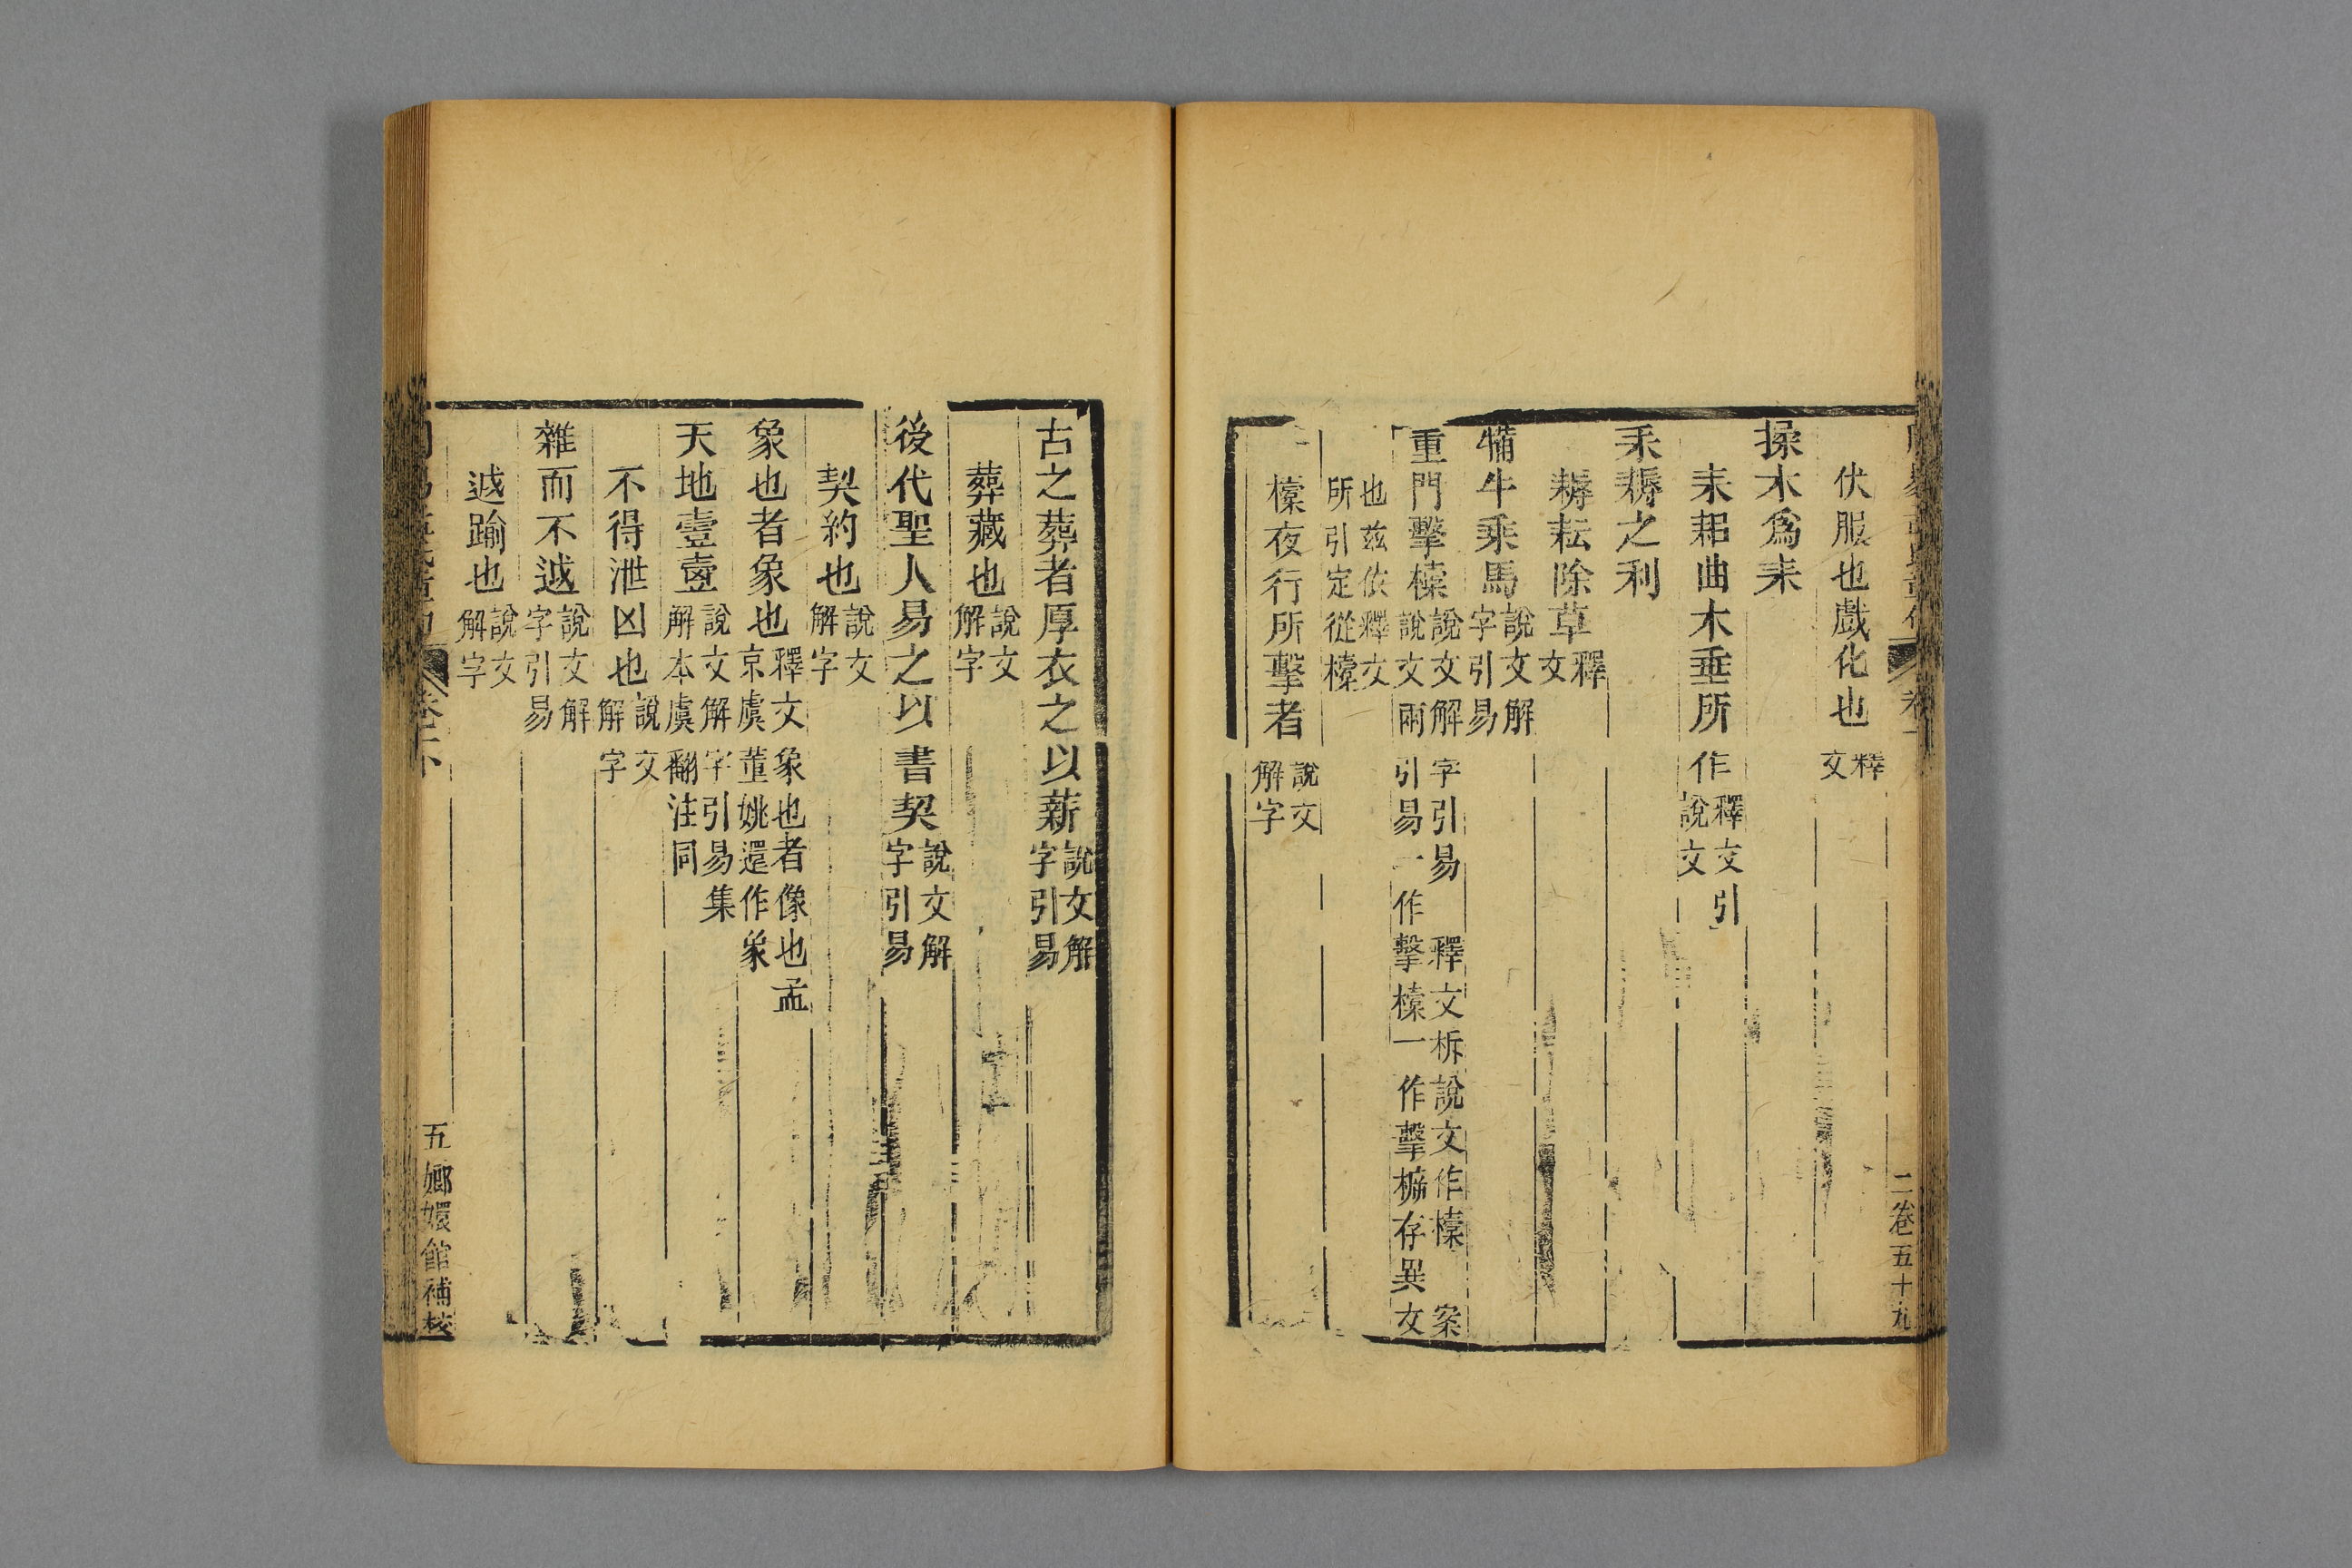 伏服也戲化也釋文
揉木爲耒
耒耜曲木垂所作釋文引說文
耒耨之利
耨耘除草釋文
犕牛乘馬說文解字引易
重門擊㯓說文解字引易 釋文柝說文作㯓 案說文兩引易一作擊㯓一作擊㯊存異文
也茲依釋文所引定從㯓
㯓夜行所擊者說文解字
二卷五十九
古之葬者厚衣之以薪說文解字引易
葬藏也說文解字
後代聖人易之以書契說文解字引易
契約也說文解字
象也者象也釋文象也者像也孟京虞董姚還作象
天地壹㚃說文解字引易集解本虞翻注同
不得泄凶也說文解字
雜而不𨒋說文解字引易
𨒋踰也說文解字
五 嫏嬛館補校